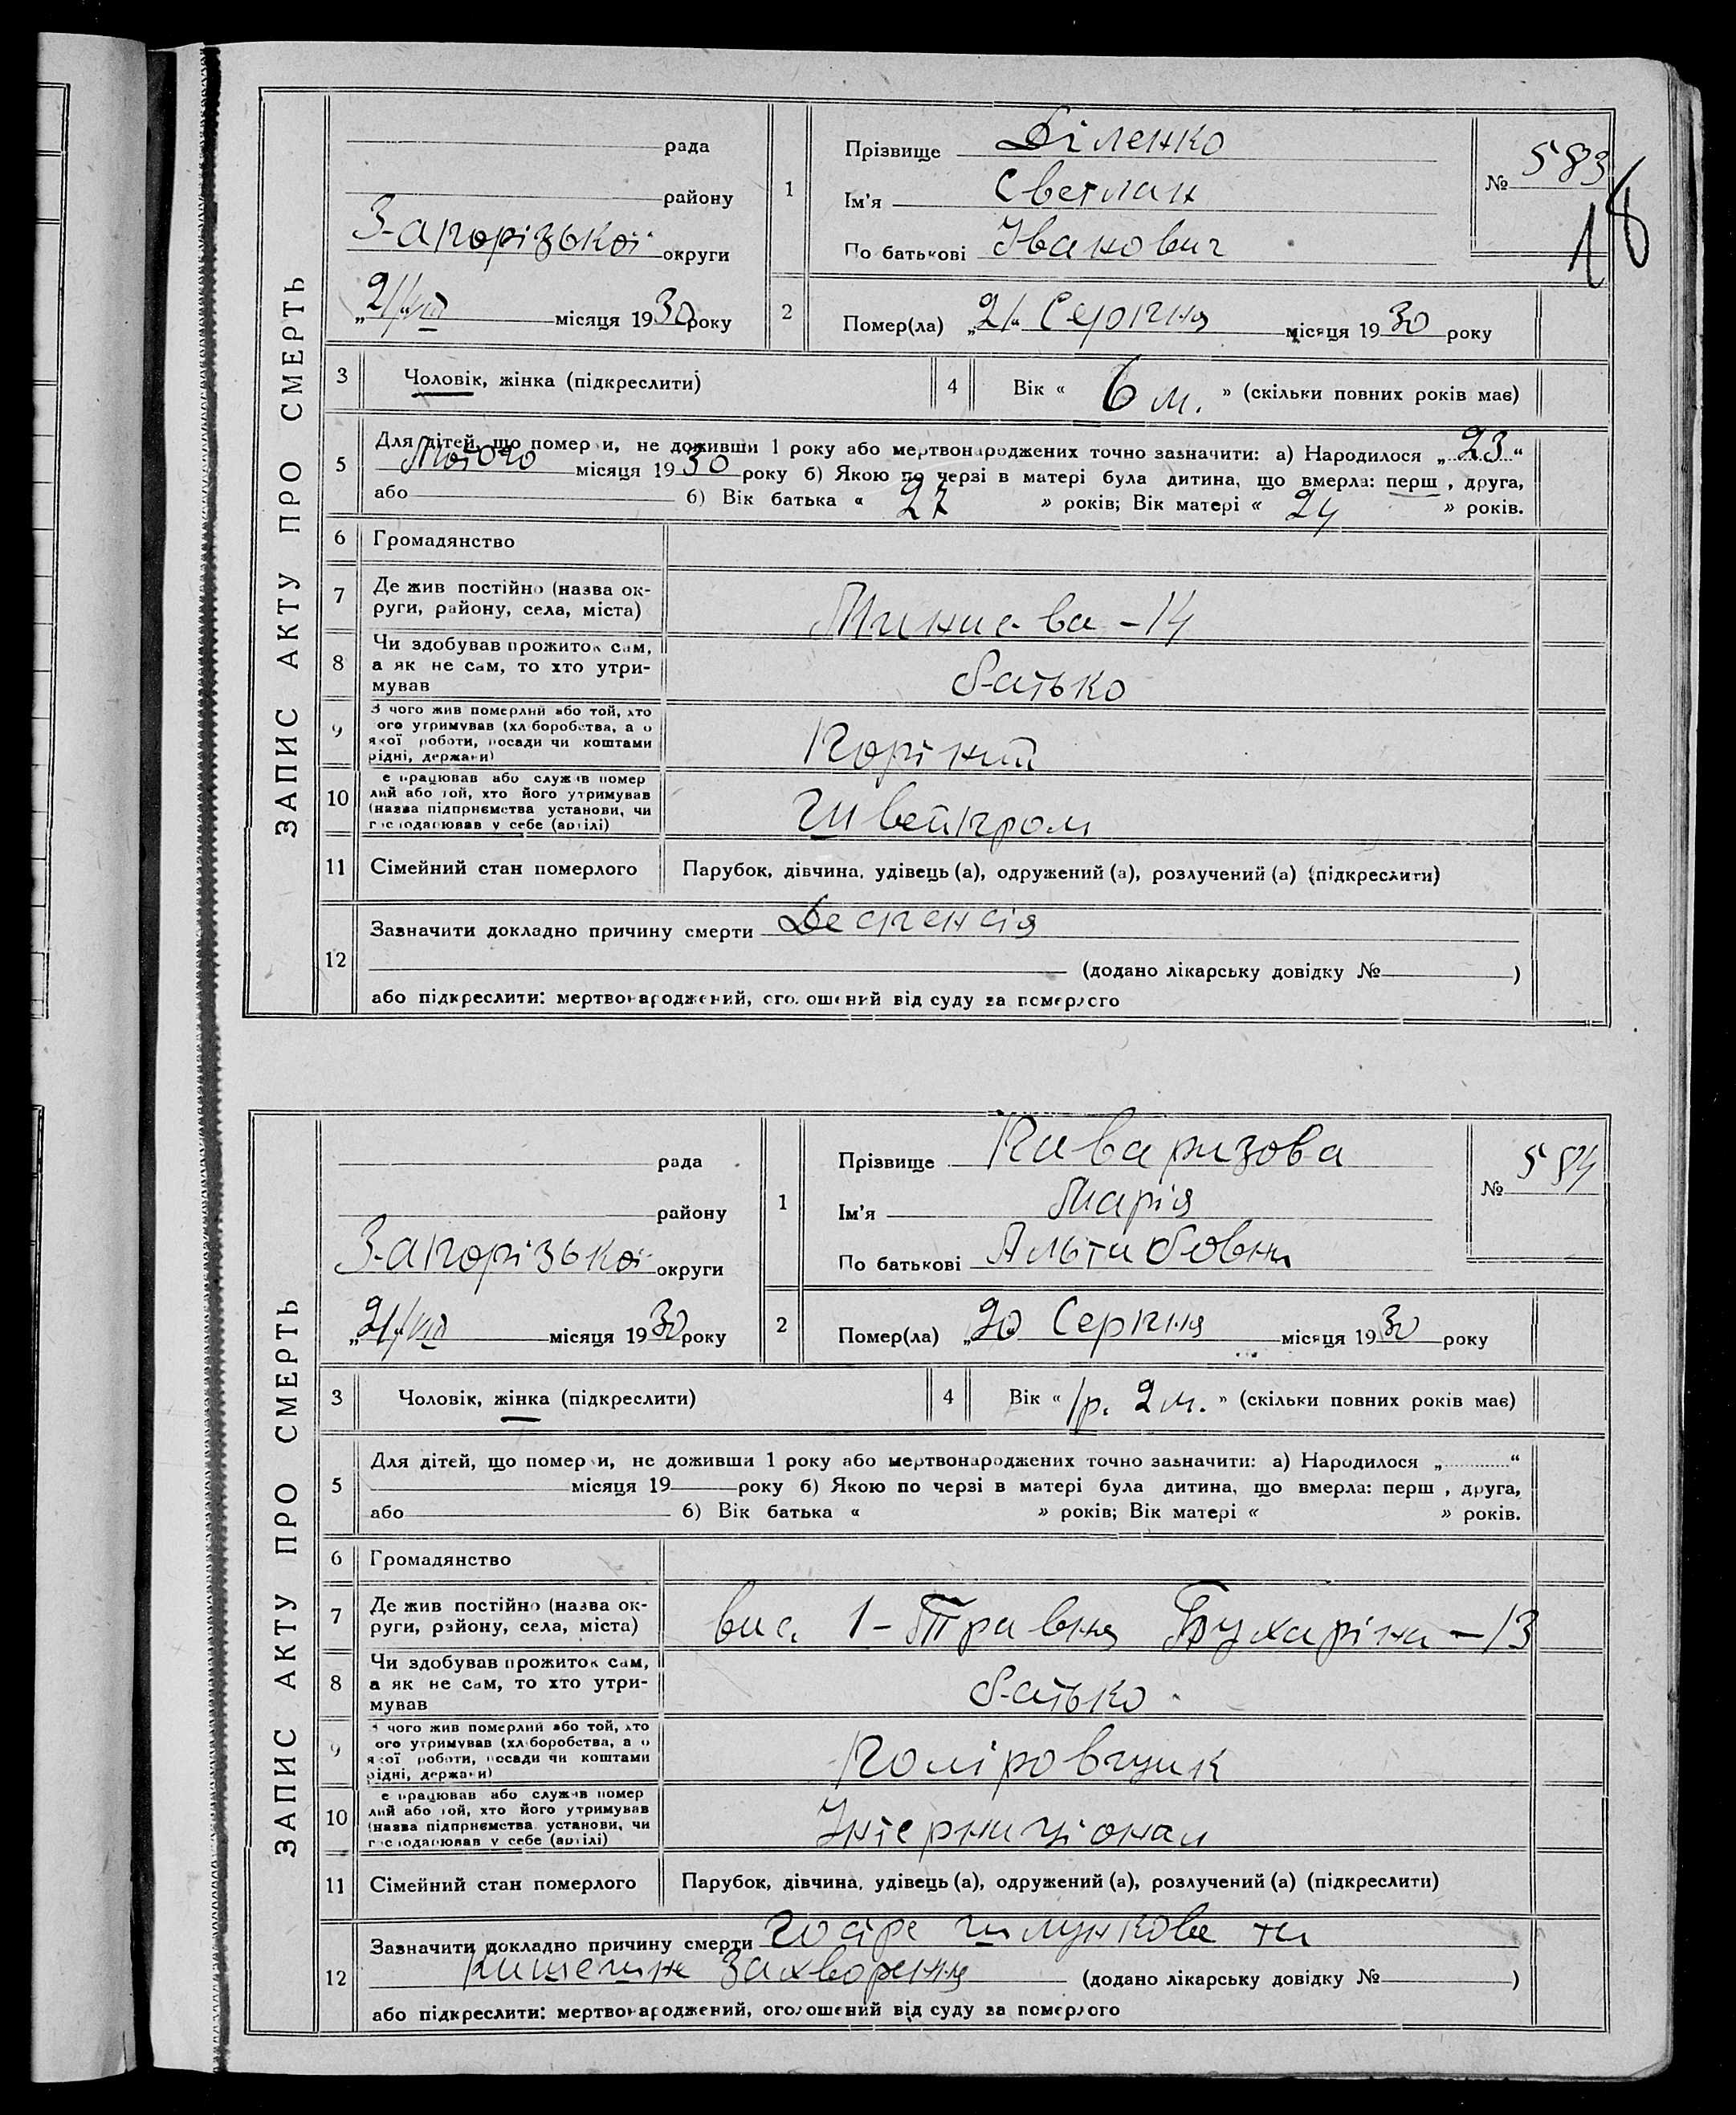 ЗАПИС АКТУ ПРО СМЕРТЬ
рада
району
Запорізької округи
„21/VIII місяця 1930 року
1
Прізвище Біленко
Ім'я Светлан
По батькові Іванович
№ 583
18
2
Помер(ла) „21“ Серпня місяця 1930 року
3 Чоловік, жінка (підкреслити)
4 Вік « 6 м. » (скільки повних років має)
5
Для дітей, що померли, не доживши 1 року або мертвонароджених точно зазначити: а) Народилося „23“
Лютого місяця 1930 року б) Якою по черзі в матері була дитина, що вмерла: перш , друга,
або б) Вік батька « 27 » років; Вік матері « 24 » років.
6 Громадянство
7
Де жив постійно (назва ок-
руги, району, села, міста)
14
8
Чи здобував прожиток сам,
а як не сам, то хто утри-
мував
батько
9
З чого жив померлий або той, хто
ого утримував (хліборобства, а о
якої роботи, посади чи коштами
рідні, держави)
10
е працював або служив помер
лий або той, хто його утримував
(назва підприємства установи, чи
господарював у себе (артілі)
Швейпром
11 Сімейний стан померлого Парубок, дівчина, удівець (а), одружений (а), розлучений (а) (підкреслити)
12
Зазначити докладно причину смерти
(додано лікарську довідку № )
або підкреслити: мертвонароджений, оголошений від суду за померлого
ЗАПИС АКТУ ПРО СМЕРТЬ
рада
району
Запорізької округи
„21/VIII місяця 1930 року
1
Прізвище
Ім'я Марія
По батькові
№ 584
2
Помер(ла) „20 Серпня місяця 1930 року
3 Чоловік, жінка (підкреслити)
4 Вік « 1р. 2м. » (скільки повних років має)
5
Для дітей, що померли, не доживши 1 року або мертвонароджених точно зазначити: а) Народилося „ “
місяця 19 року б) Якою по черзі в матері була дитина, що вмерла: перш , друга,
або б) Вік батька « » років; Вік матері « » років.
6 Громадянство
7
Де жив постійно (назва ок-
руги, району, села, міста)
вис. 1-Травня Бухаріна – 13
8
Чи здобував прожиток сам,
а як не сам, то хто утри-
мував
батько
9
З чого жив померлий або той, хто
ого утримував (хліборобства, а о
якої роботи, посади чи коштами
рідні, держави)
Поліровщик
10
е працював або служив помер
лий або той, хто його утримував
(назва підприємства установи, чи
господарював у себе (артілі)
Інтернаціонал
11 Сімейний стан померлого Парубок, дівчина, удівець (а), одружений (а), розлучений (а) (підкреслити)
12
Зазначити докладно причину смерти Гостре шлункове та
кишечне захворення (додано лікарську довідку № )
або підкреслити: мертвонароджений, оголошений від суду за померлого